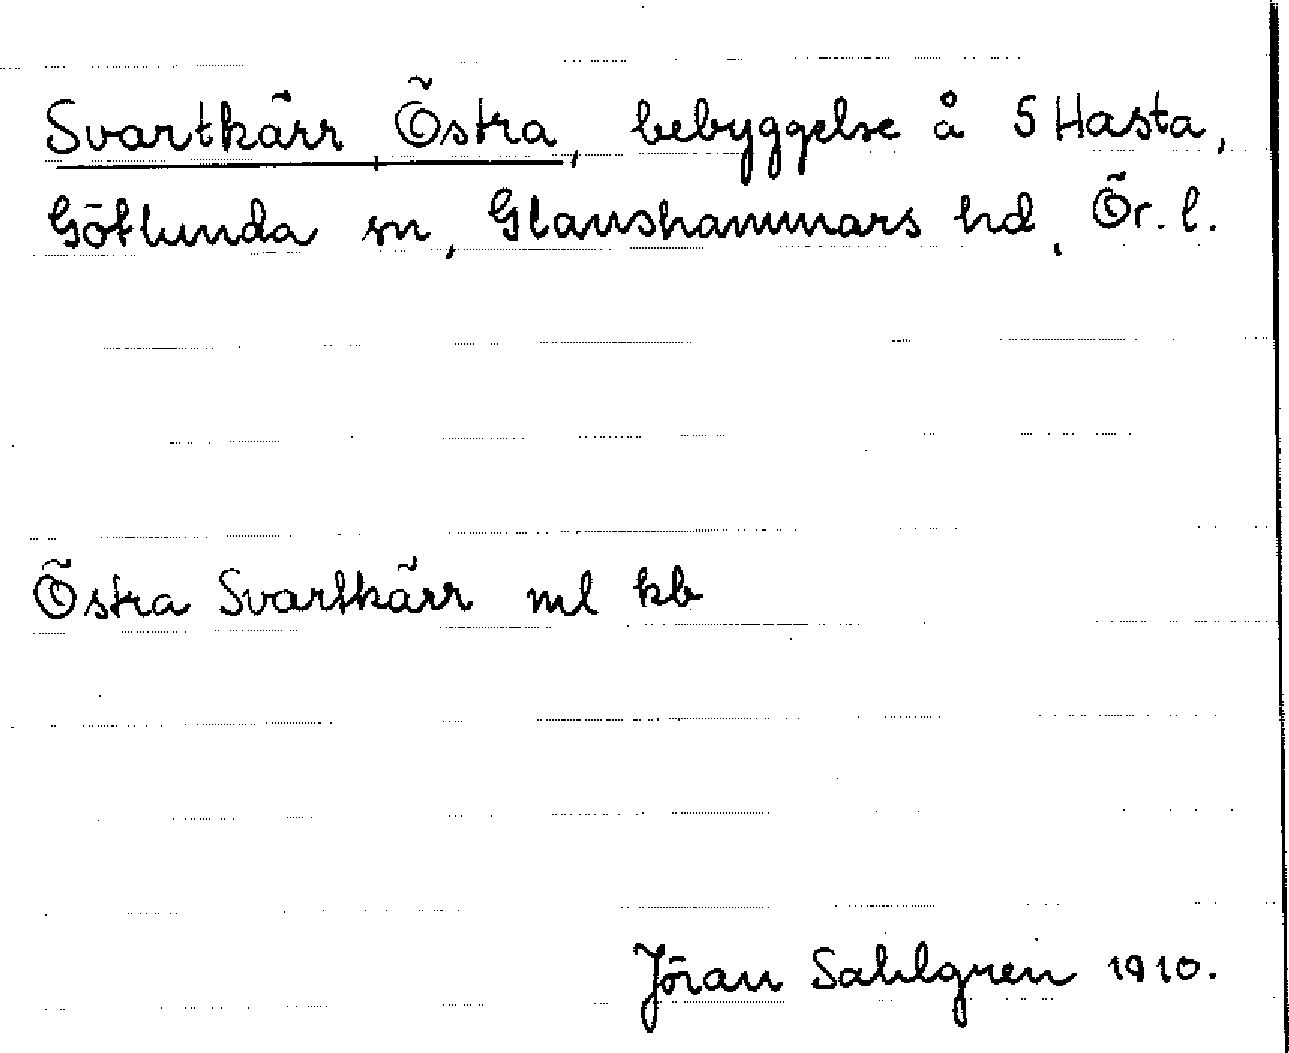 Svartkärr, Östra, bebyggelse å 5 Hasta,
Götlunda sn, Glanshammars hd, Ör. l.
Östra Svartkärr ml kb
Jöran Sahlgren 1910.